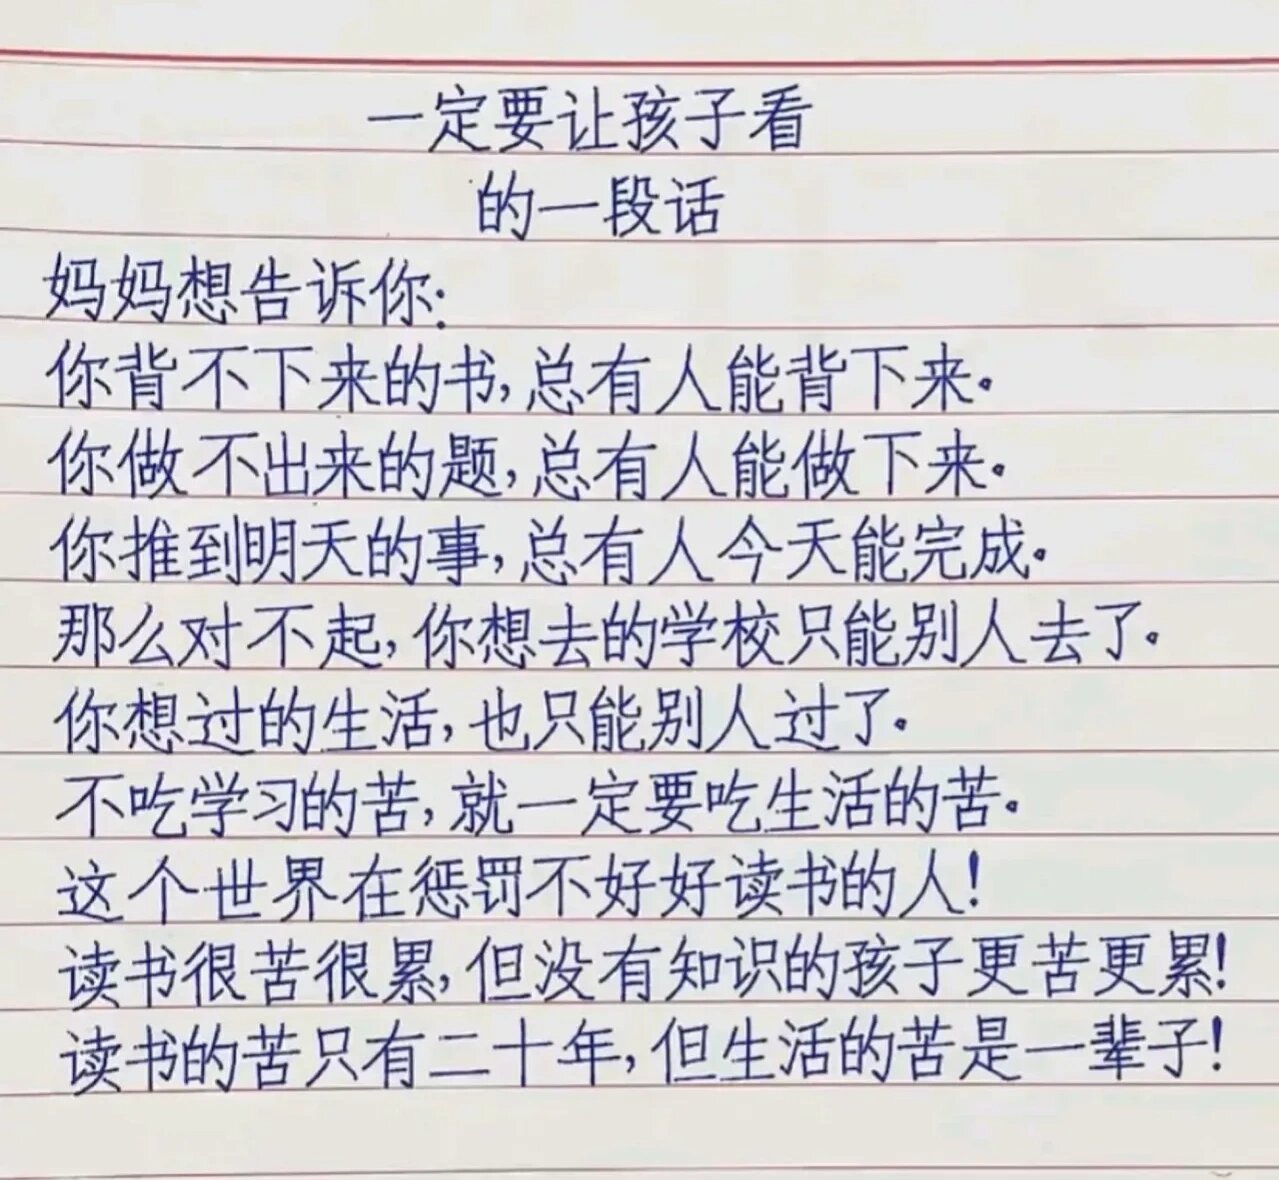 一定要让孩子看
的一段话
妈妈想告诉你:
你背不下来的书,总有人能背下来。
你做不出来的题,总有人能做下来。
你推到明天的事,总有人今天能完成。
那么对不起,你想去的学校只能别人去了。
你想过的生活,也只能别人过了。
不吃学习的苦,就一定要吃生活的苦。
这个世界在惩罚不好好读书的人!
读书很苦很累,但没有知识的孩子更苦更累!
读书的苦只有二十年,但生活的苦是一辈子!